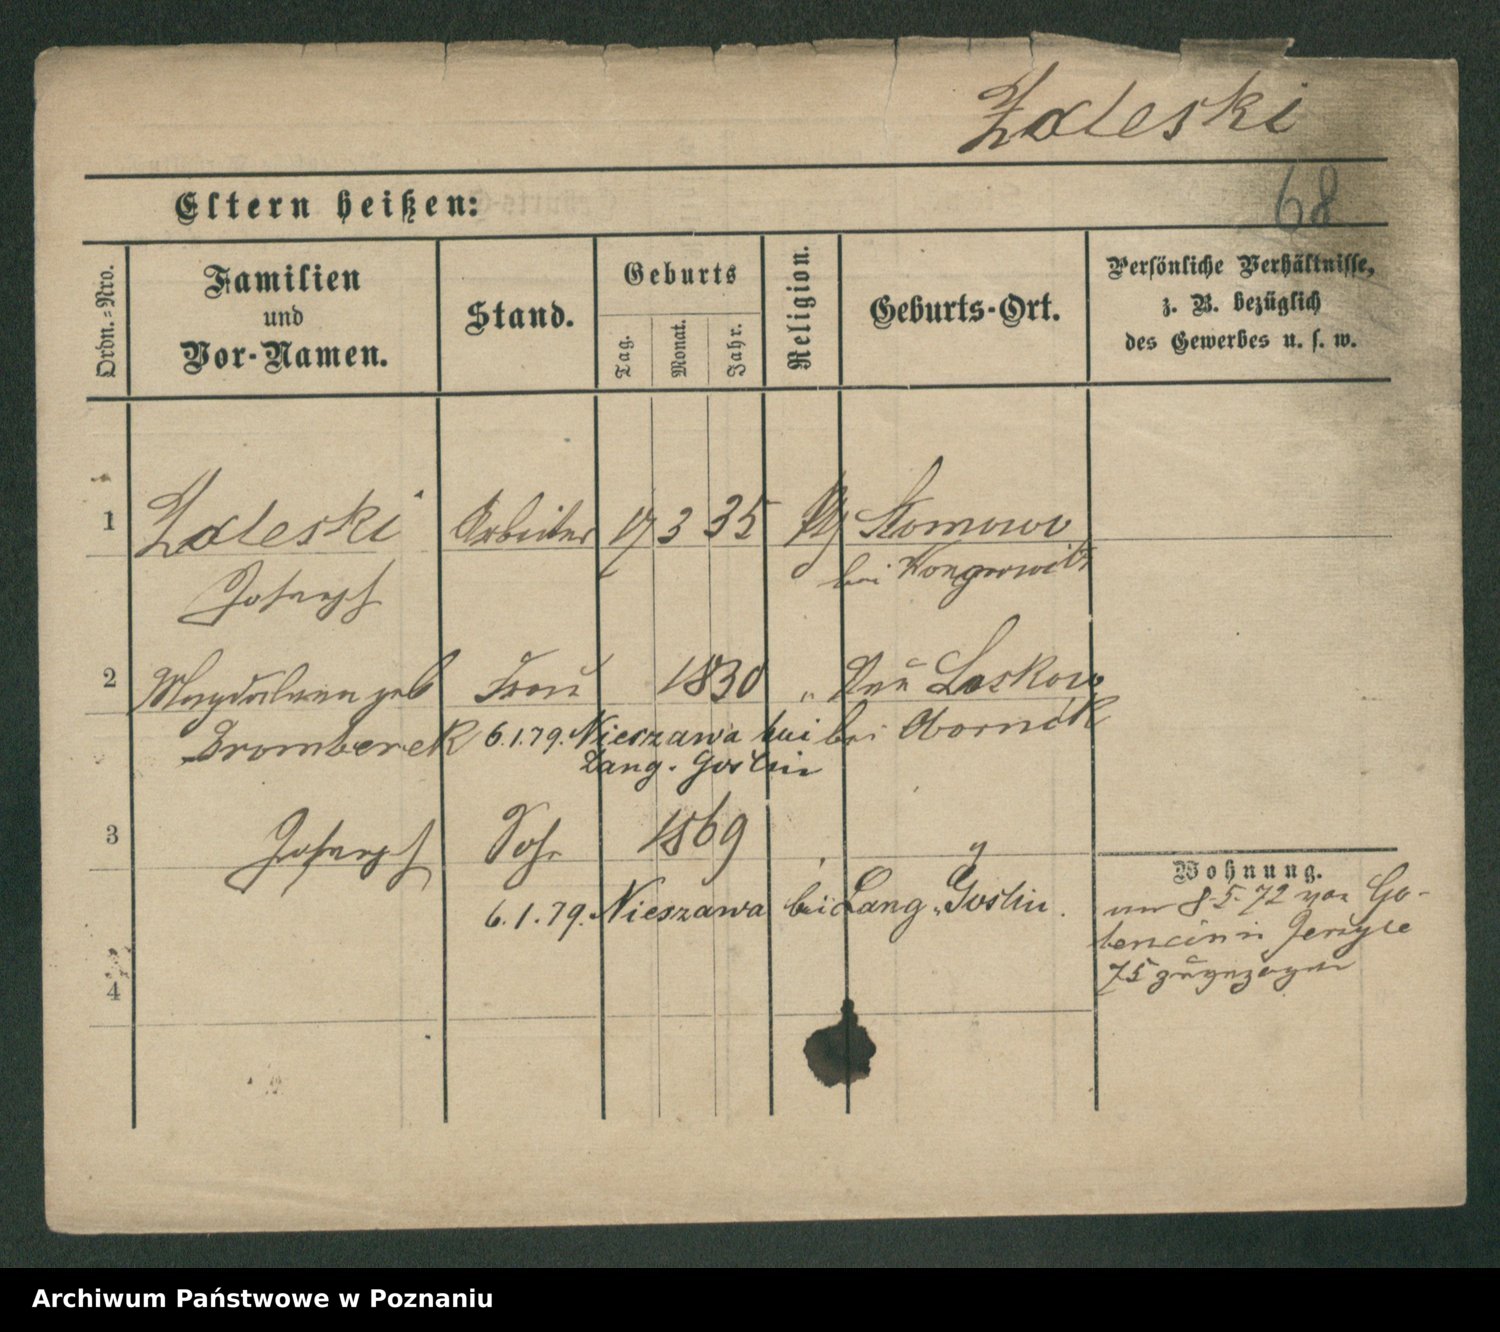 Zaleski
68
Eltern heißen:
Ordn.=Nro.
Familien
und
Vor-Namen.
Stand.
Geburts
Tag.
Monat.
Jahr.
Religion.
Geburts-Ort.
Persönliche Verhältnisse,
z. B. bezüglich
des Gewerbes u. s. w.
1 Zaleski Arbeiter 17 3 35 Slomowo
Joseph bei
2 Magdalena geb Frau 1830 " Neu Loskow
Dromberek 6.1.79. Nieszawa bei bei Obornik
Lang. Goslin
3 Joseph Sohn 1869
6.1.79. Nieszawa bei Lang. Goslin.
Wohnung.
8.5.72 von Go-
lencin n. Jerzyce
4
75 zugezogen
Archiwum Państwowe w Poznaniu